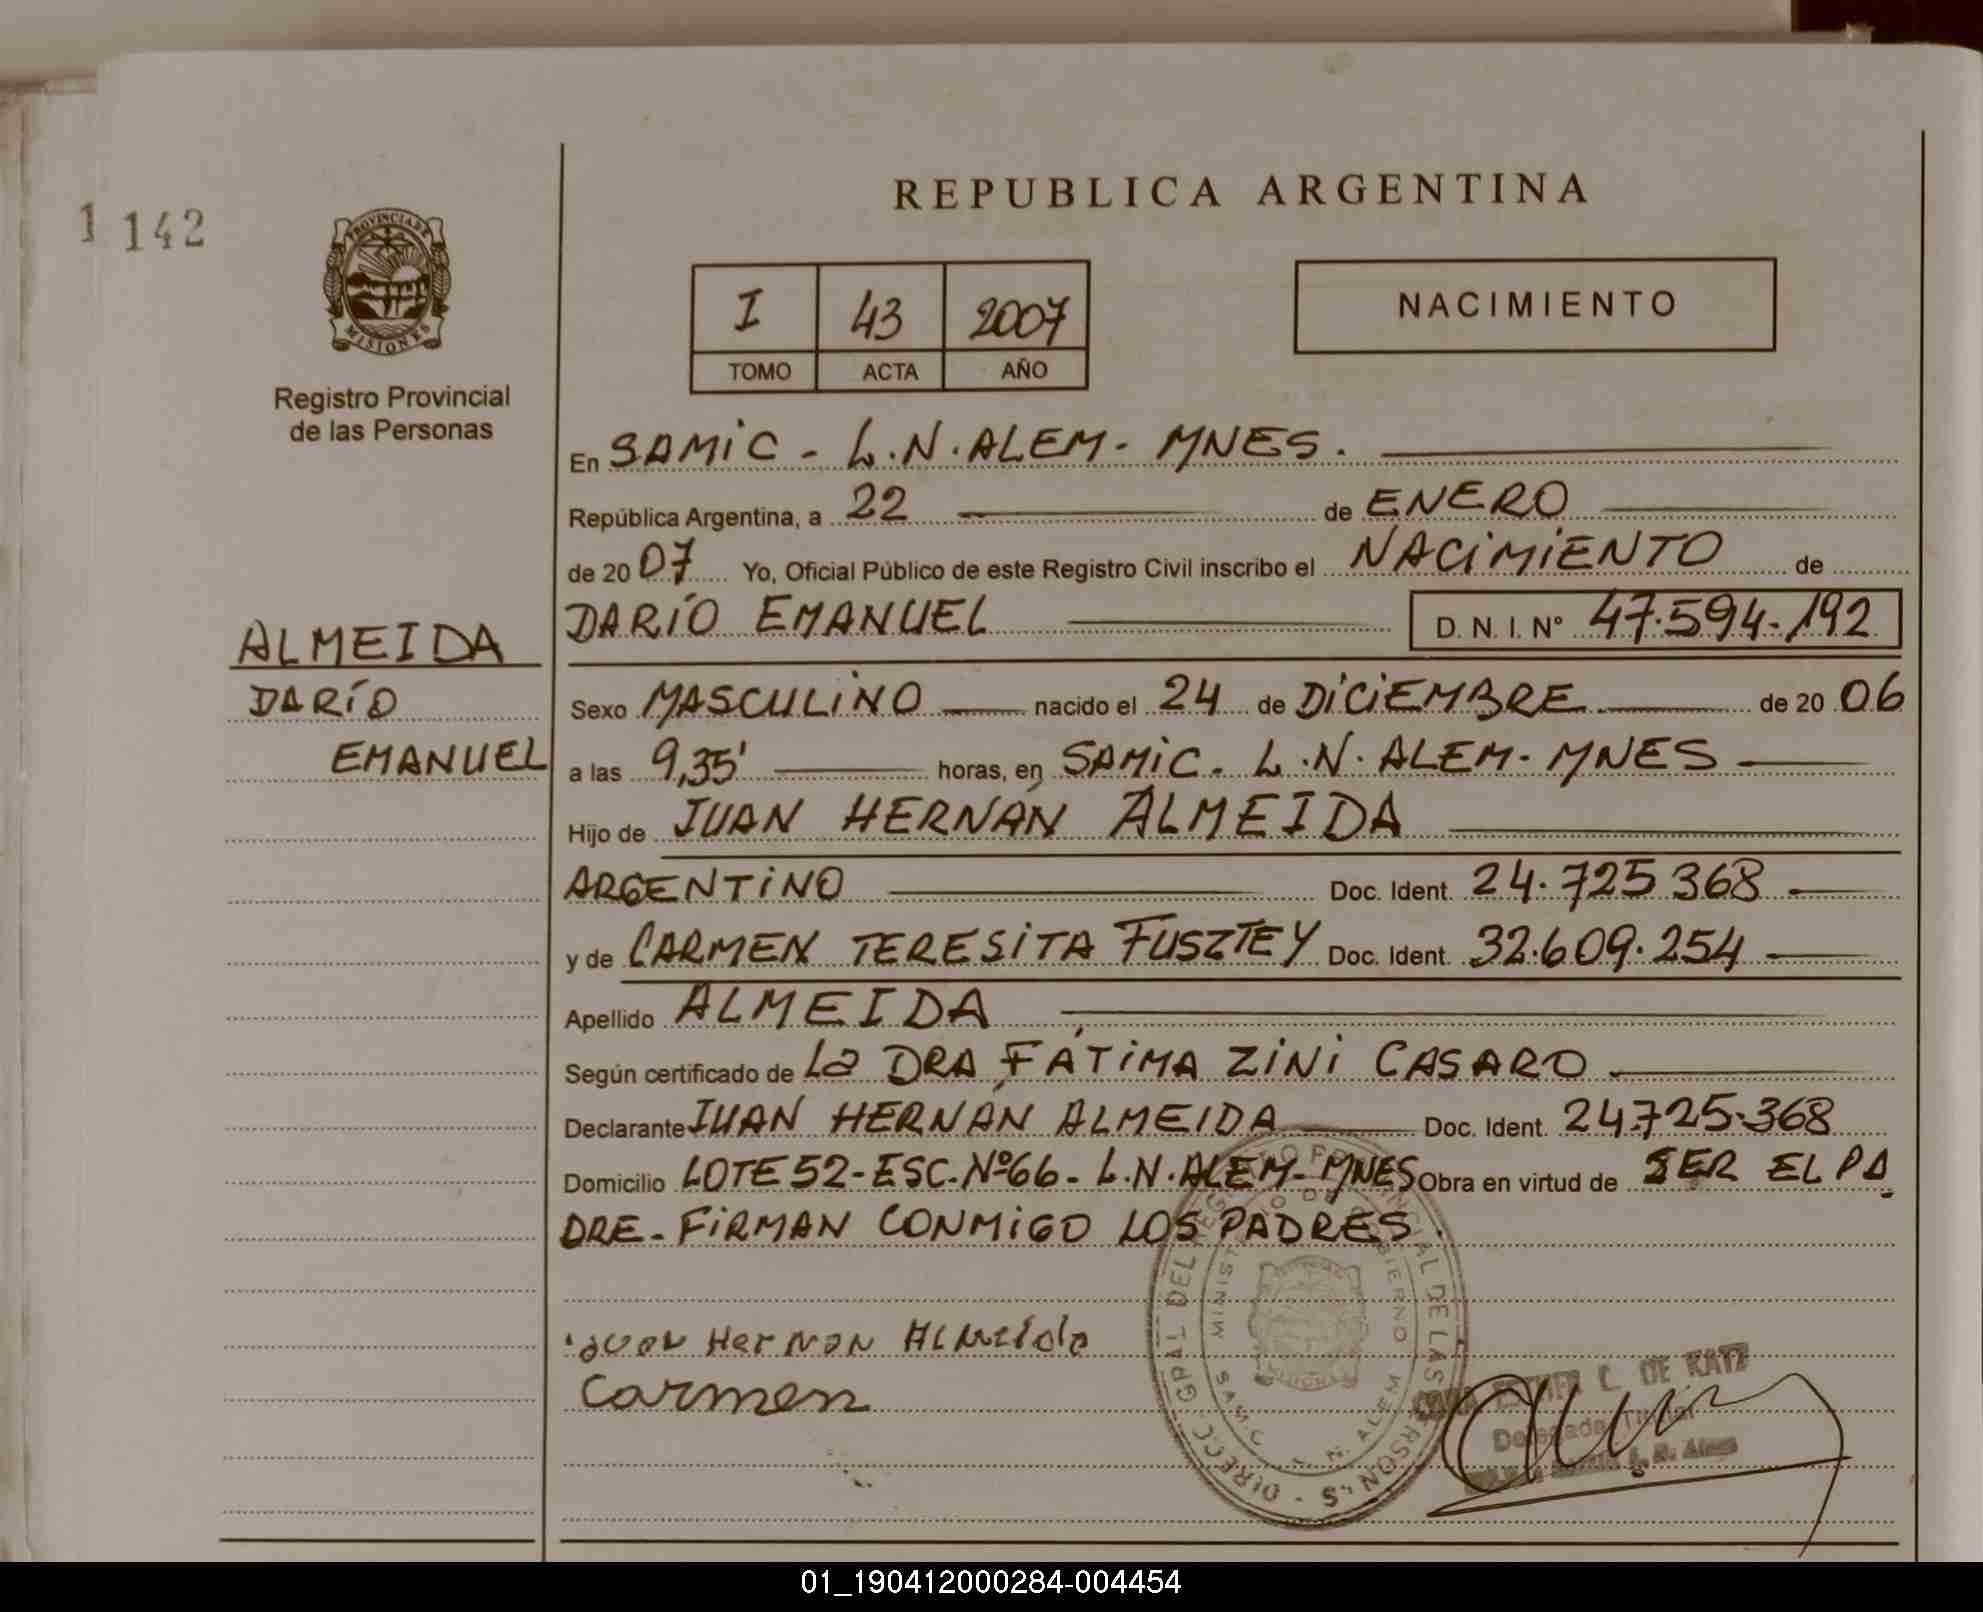 1 142
PROVINCIA DE
MISIONES
Registro Provincial
de las Personas
ALMEIDA
DARÍO
EMANUEL
REPUBLICA ARGENTINA
I 43 2007
TOMO ACTA AÑO
NACIMIENTO
En SAMIC - L.N. ALEM - MNES.
República Argentina, a 22 de ENERO
de 20 07 Yo, Oficial Público de este Registro Civil inscribo el NACIMIENTO de
DARÍO EMANUEL D. N. I. N° 47.594.192
Sexo MASCULINO nacido el 24 de DICIEMBRE de 20 06
a las 9,35' horas, en SAMIC. L.N. ALEM - MNES
Hijo de JUAN HERNÁN ALMEIDA
ARGENTINO Doc. Ident. 24.725.368
y de CARMEN TERESITA FUSZTEY Doc. Ident. 32.609.254
Apellido ALMEIDA
Según certificado de La DRA FÁTIMA ZINI CASARO
Declarante JUAN HERNÁN ALMEIDA Doc. Ident. 24.725.368
Domicilio LOTE 52 - ESC. Nº 66 - L.N. ALEM - MNES Obra en virtud de SER EL PA
DRE - FIRMAN CONMIGO LOS PADRES.
Juan Hernan Almeida
Carmen
DIRECC. GRAL. DEL REGISTRO PROVINCIAL DE LAS PERSONAS
MINISTERIO DE GOBIERNO
SAMIC L. N. ALEM
ESTHER C. DE KATZ
Delegada Titular
L. N. Alem
01_190412000284-004454